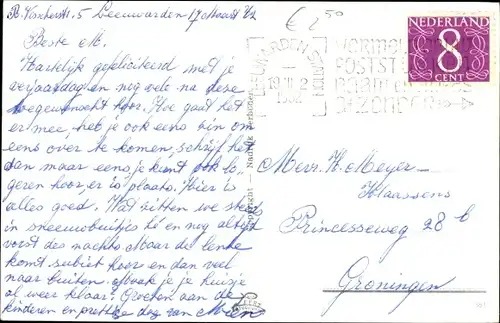 B. Visscherstr. 5 Leeuwarden 17 Maart '62
€ 2 50
Beste M.
Hartelijk gefeliciteerd met je
verjaardag en nog vele na deze
toegewenscht hoor. Hoe gaat het
er mee, heb je ook eens zin om
eens over te komen, schrijf het
dan maar eens, je kunt ook lo
geren hoor, er is plaats. Hier is
alles goed. Wat zitten we steeds
in sneeuwbuitjes hé en nog altijd
vorst des nachts. Maar de lente
komt subiet hoor en dan veel
naar buiten. je je huisje
al weer klaar? Groeten aan de
kinderen en prettige dag van Mien
NEDERLAND
8
CENT
LEEUWARDEN
19.III.
1962
NORMAL
POSTST
BIJZONDER
Copyright Nadruk Verboden
Mevr. H. Meyer-
Klaassens
Princesseweg 28 b
Groningen